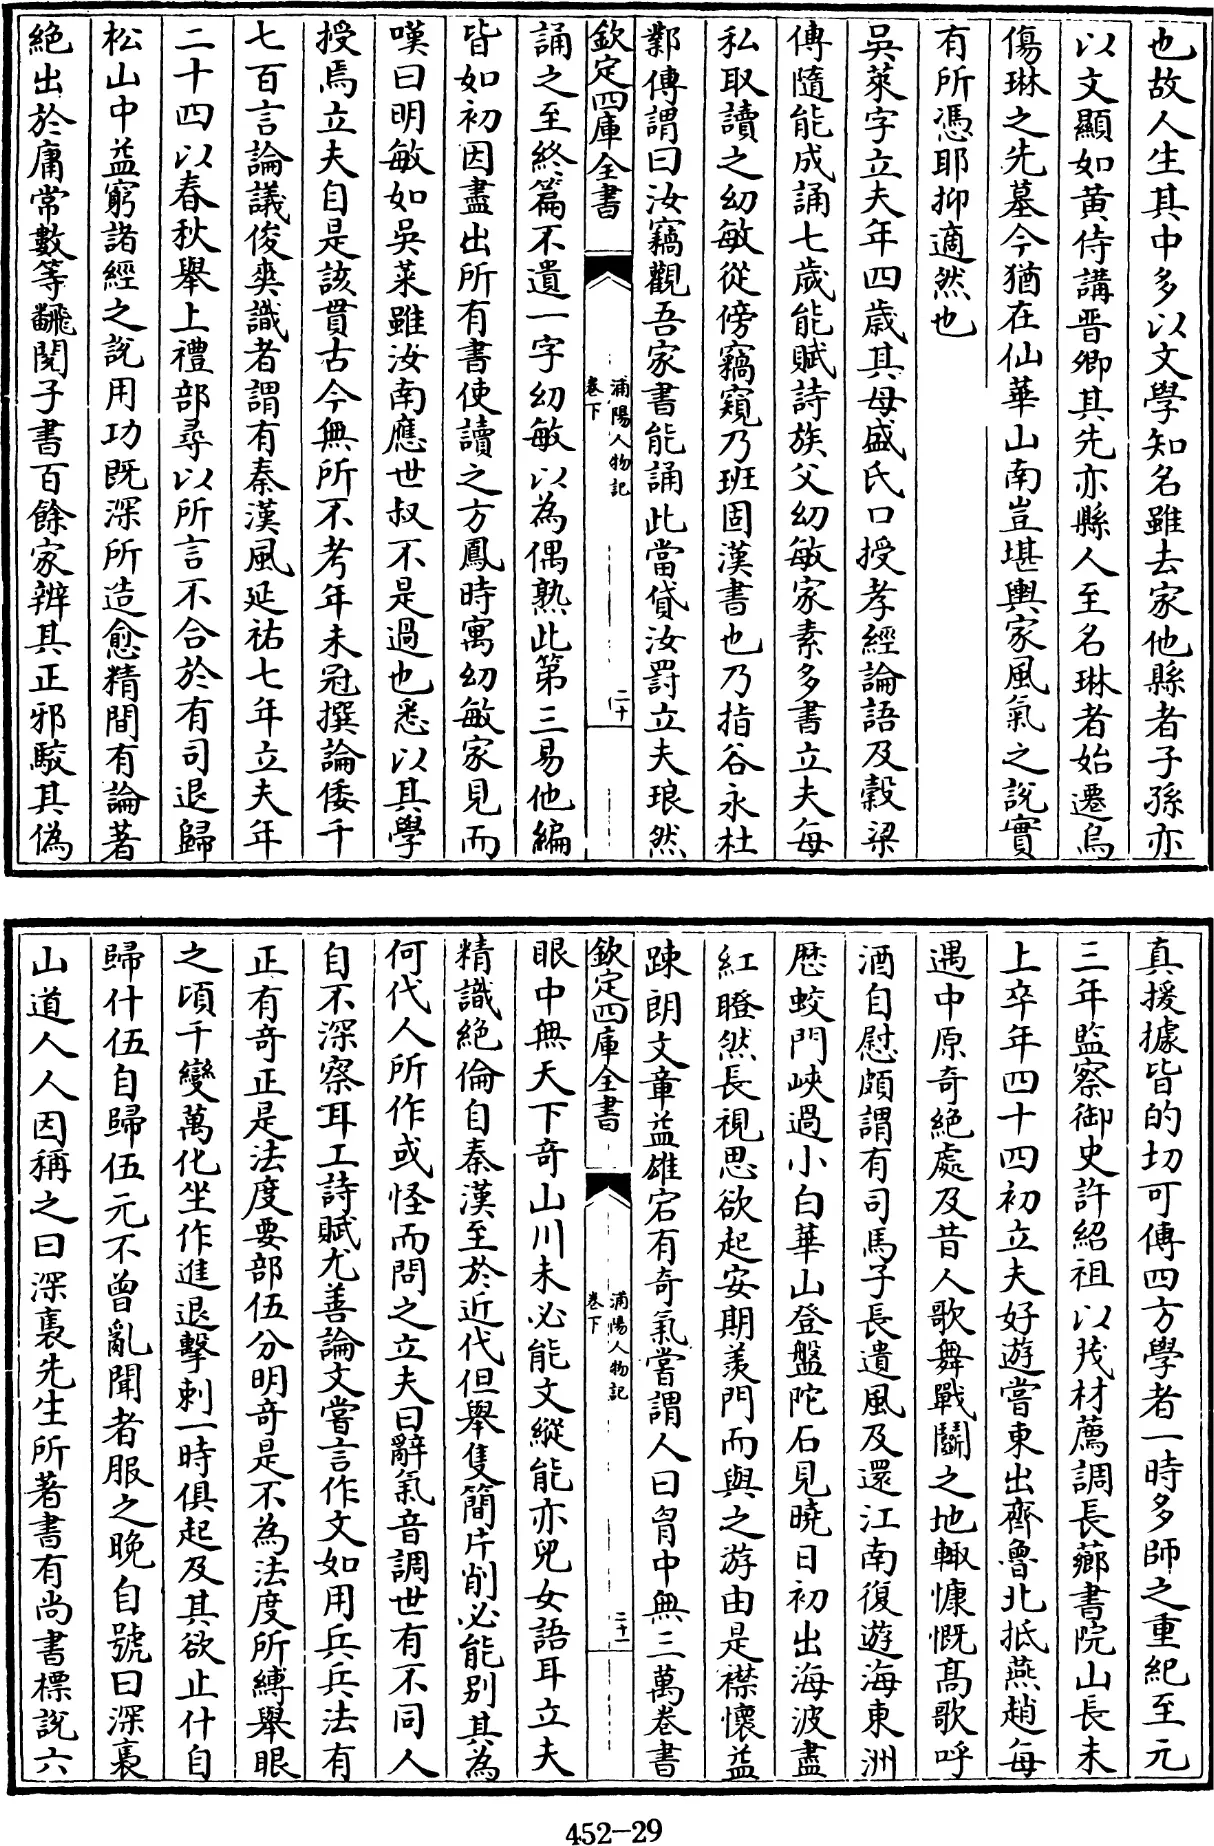 也故人生其中多以文學知名雖去家他縣者子孫亦
以文顯如黄侍講晋卿其先亦縣人至名琳者始遷烏
傷琳之先墓今猶在仙華山南豈堪輿家風氣之說實
有所憑耶抑適然也
吳萊字立夫年四歲其母盛氏口授孝經論語及穀梁
傳隨能成誦七歲能賦詩族父幼敏家素多書立夫每
私取讀之幼敏從傍竊窺乃班固漢書也乃指谷永杜
鄴傳謂曰汝竊觀吾家書能誦此當貸汝罰立夫琅然
欽定四庫全書
浦陽人物記
卷下
二十
誦之至終篇不遺一字幼敏以為偶熟此第三易他編
皆如初因盡出所有書使讀之方鳳時寓幼敏家見而
嘆曰明敏如吳萊雖汝南應世叔不是過也悉以其學
授焉立夫自是該貫古今無所不考年未冠撰論倭千
七百言論議俊爽識者謂有秦漢風延祐七年立夫年
二十四以春秋舉上禮部尋以所言不合於有司退歸
松山中益窮諸經之說用功既深所造愈精間有論著
絶出於庸常數等飜閱子書百餘家辨其正邪駁其偽
真援據皆的切可傳四方學者一時多師之重紀至元
三年監察御史許紹祖以茂材薦調長薌書院山長未
上卒年四十四初立夫好遊嘗東出齊魯北抵燕趙每
遇中原奇絶處及昔人歌舞戰鬭之地輙慷慨髙歌呼
酒自慰頗謂有司馬子長遺風及還江南復遊海東洲
歷蛟門峽過小白華山登盤陀石見曉日初出海波盡
紅瞪然長視思欲起安期羨門而與之游由是襟懷益
踈朗文章益雄宕有奇氣嘗謂人曰胷中無三萬卷書
欽定四庫全書
浦陽人物記
卷下
二十一
眼中無天下奇山川未必能文縱能亦兒女語耳立夫
精識絶倫自秦漢至於近代但舉隻簡片削必能别其為
何代人所作或怪而問之立夫曰辭氣音調世有不同人
自不深察耳工詩賦尤善論文嘗言作文如用兵兵法有
正有奇正是法度要部伍分明奇是不為法度所縛舉眼
之頃千變萬化坐作進退擊刺一時俱起及其欲止什自
歸什伍自歸伍元不曾亂聞者服之晚自號曰深褭
山道人人因稱之曰深褭先生所著書有尚書標說六
452-29